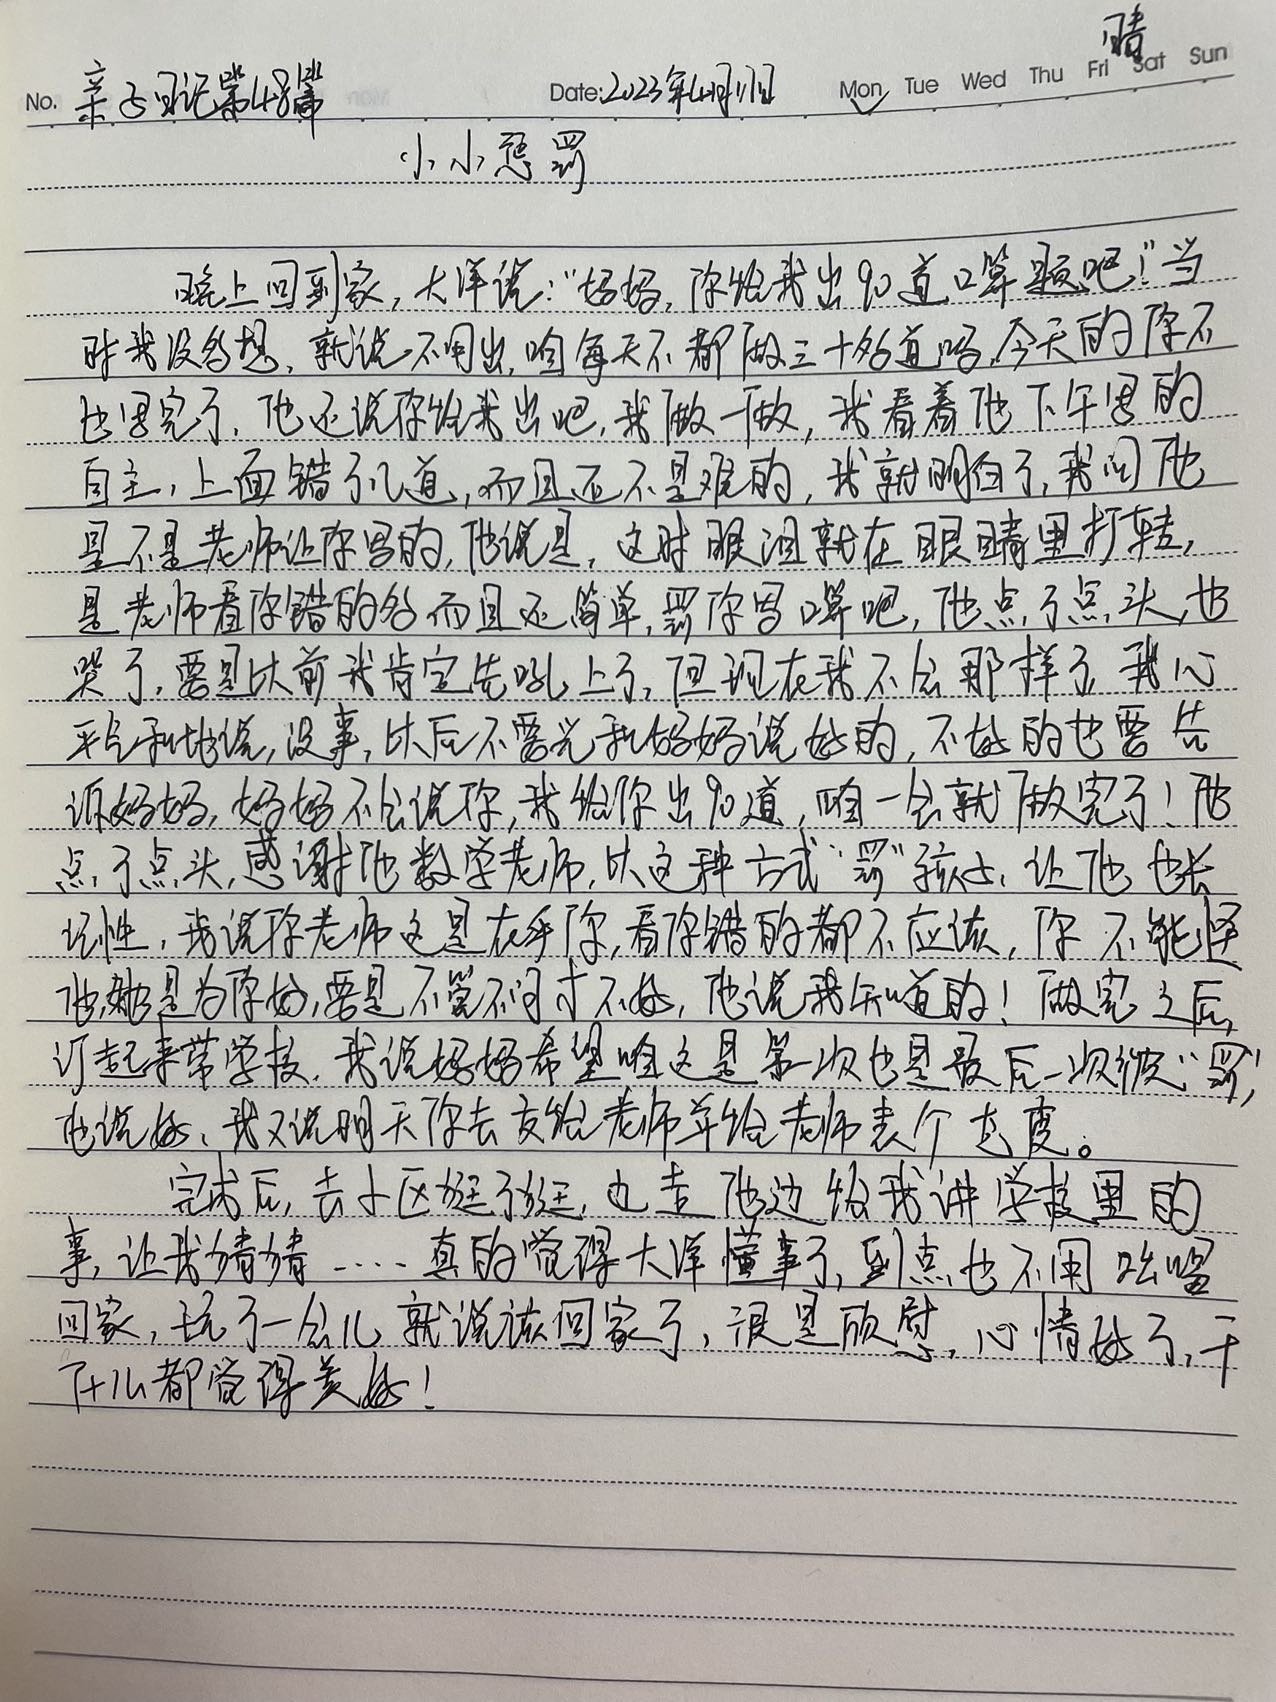 No. 亲子日记第48篇 Date:2023年4月17日 Mon Tue Wed Thu Fri Sat Sun 晴
小小惩罚
晚上回到家，大洋说：“妈妈，你给我出90道口算题吧！”当
时我没多想，就说不用出，咱每天不都做三十多道吗，今天的你不
也写完了，他还说你给我出吧，我做一做，我看着他下午写的
自主，上面错了几道，而且还不是难的，我就明白了，我问他
是不是老师让你写的，他说是，这时眼泪就在眼睛里打转，
是老师看你错的多而且还简单，罚你写口算吧，他点了点头，也
哭了，要是以前我肯定先吼上了，但现在我不会那样了，我心
平气和地说，没事，以后不要光和妈妈说好的，不好的也要告
诉妈妈，妈妈不会说你，我给你出90道，咱一会就做完了！他
点了点头，感谢他数学老师，以这种方式“罚”孩子，让他也长
记性，我说你老师这是在乎你，看你错的都不应该，你不能怪
她是为你好，要是不管不问才不好，他说我知道的！做完之后，
订起来带学校，我说妈妈希望咱这是第一次也是最后一次被“罚”，
他说好，我又说明天你去交给老师并给老师表个态度。
完成后，去小区逛了逛，他边给我讲学校里的
事，让我猜猜……真的觉得大洋懂事了，到点也不用咱喊
回家，玩了一会儿就说该回家了，很是欣慰，心情好了，干
什么都觉得美好！